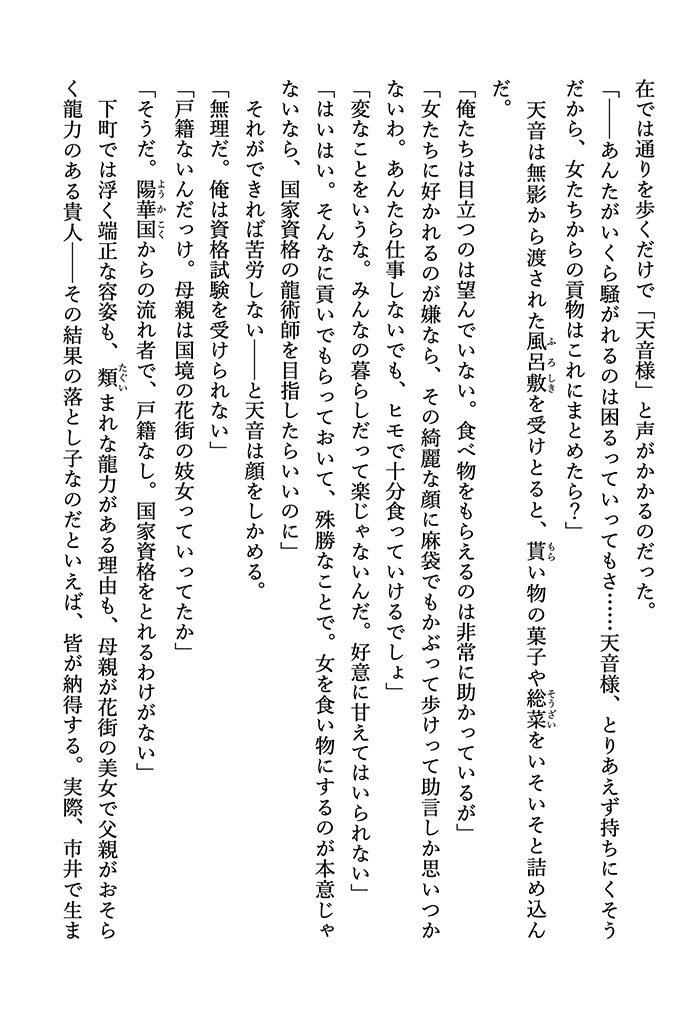 在では通りを歩くだけで「天音様」と声がかかるのだった。
「――あんたがいくら騒がれるのは困るっていってもさ……天音様、とりあえず持ちにくそう
だから、女たちからの貢物はこれにまとめたら？」
天音は無影から渡された風呂敷を受けとると、貰い物の菓子や総菜をいそいそと詰め込ん
だ。
「俺たちは目立つのは望んでいない。食べ物をもらえるのは非常に助かっているが」
「女たちに好かれるのが嫌なら、その綺麗な顔に麻袋でもかぶって歩けって助言しか思いつか
ないわ。あんたら仕事しないでも、ヒモで十分食っていけるでしょ」
「変なことをいうな。みんなの暮らしだって楽じゃないんだ。好意に甘えてはいられない」
「はいはい。そんなに貢いでもらっておいて、殊勝なことで。女を食い物にするのが本意じゃ
ないなら、国家資格の龍術師を目指したらいいのに」
それができれば苦労しない――と天音は顔をしかめる。
「無理だ。俺は資格試験を受けられない」
「戸籍ないんだっけ。母親は国境の花街の妓女っていってたか」
「そうだ。陽華国からの流れ者で、戸籍なし。国家資格をとれるわけがない」
下町では浮く端正な容姿も、類まれな龍力がある理由も、母親が花街の美女で父親がおそら
く龍力のある貴人――その結果の落とし子なのだといえば、皆が納得する。実際、市井で生ま